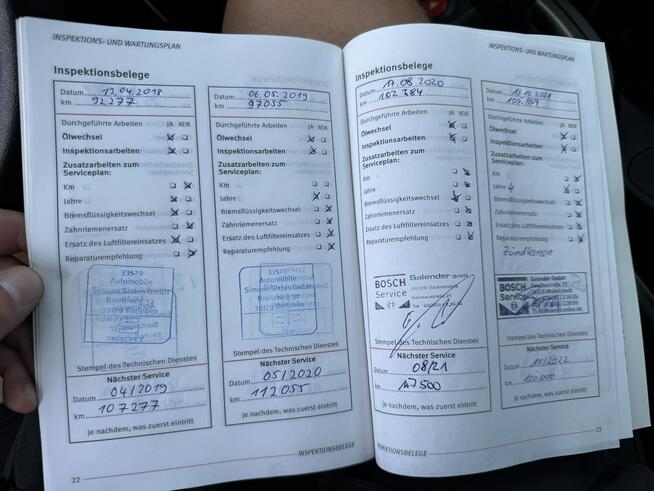 INSPEKTIONS- UND WARTUNGSPLAN
Inspektionsbelege
Datum 13.04.2018
km 92277
Durchgeführte Arbeiten JA NEIN
Ölwechsel
Inspektionsarbeiten
Zusatzarbeiten zum
Serviceplan:
Km
Jahre
Bremsflüssigkeitswechsel
Zahnriemenersatz
Ersatz des Luftfiltereinsatzes
Reparaturempfehlung
33529
Automobile
Stempel des Technischen Dienstes
Nächster Service
Datum 04/2019
km 107277
je nachdem, was zuerst eintritt
Datum 06.05.2019
km 97055
Durchgeführte Arbeiten JA NEIN
Ölwechsel
Inspektionsarbeiten
Zusatzarbeiten zum
Serviceplan:
Km
Jahre
Bremsflüssigkeitswechsel
Zahnriemenersatz
Ersatz des Luftfiltereinsatzes
Reparaturempfehlung
Automobile
Stempel des Technischen Dienstes
Nächster Service
Datum 05/2020
km 112055
je nachdem, was zuerst eintritt
22
INSPEKTIONSBELEGE
INSPEKTIONS- UND WARTUNGSPLAN
Inspektionsbelege
Datum 17.08.2020
km 102384
Durchgeführte Arbeiten JA NEIN
Ölwechsel
Inspektionsarbeiten
Zusatzarbeiten zum
Serviceplan:
Km
Jahre
Bremsflüssigkeitswechsel
Zahnriemenersatz
Ersatz des Luftfiltereinsatzes
Reparaturempfehlung
BOSCH
Service
Stempel des Technischen Dienstes
Nächster Service
Datum 08/21
km 117500
je nachdem, was zuerst eintritt
Datum
km
Durchgeführte Arbeiten JA NEIN
Ölwechsel
Inspektionsarbeiten
Zusatzarbeiten zum
Serviceplan:
Km
Jahre 4
Bremsflüssigkeitswechsel
Zahnriemenersatz
Ersatz des Luftfiltereinsatzes
Reparaturempfehlung
Zündkerzen
BOSCH
Service
Stempel des Technischen Dienstes
Nächster Service
Datum
km 120.000
je nachdem, was zuerst eintritt
INSPEKTIONSBELEGE
23